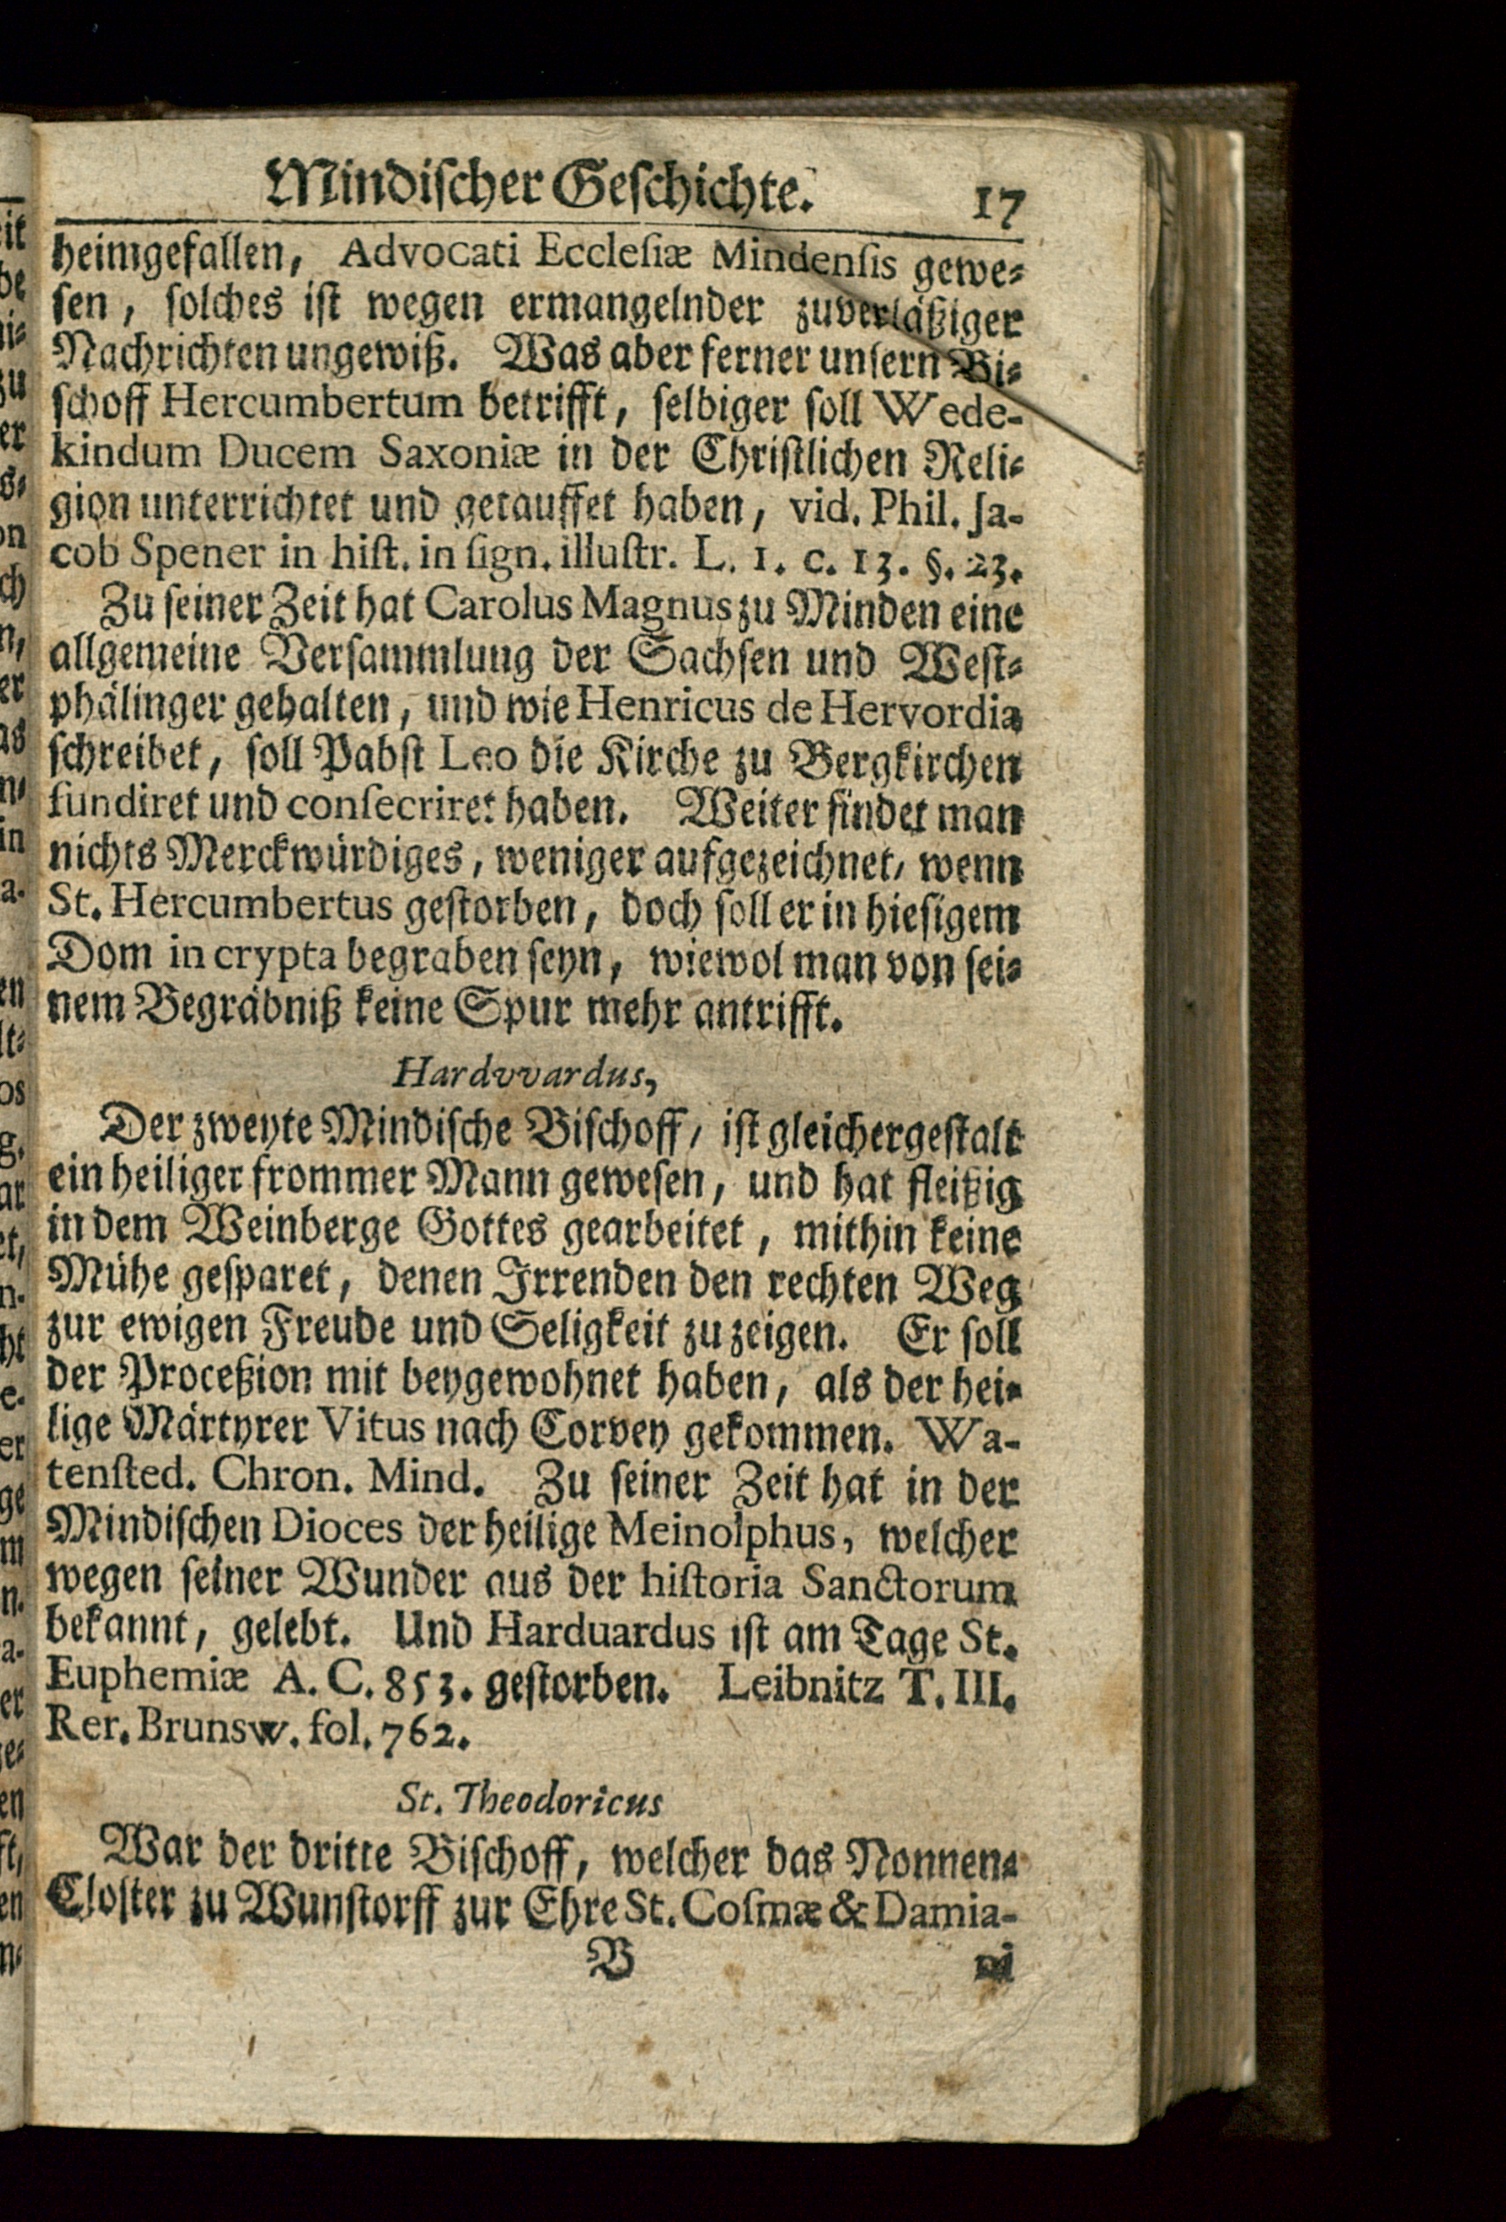 Mindischer Geschichte. 17
heimgefallen, Advocati Ecclesiæ Mindensis gewe-
sen, solches ist wegen ermangelnder zuverläßiger
Nachrichten ungewiß. Was aber ferner unsern Bi-
schoff Hercumbertum betrifft, selbiger soll Wede-
kindum Ducem Saxoniæ in der Christlichen Reli-
gion unterrichtet und getauffet haben, vid. Phil. Ja-
cob Spener in hist. in sign. illustr. L. 1. c. 13. §. 23.
Zu seiner Zeit hat Carolus Magnus zu Minden eine
allgemeine Versammlung der Sachsen und West-
phälinger gehalten, und wie Henricus de Hervordia
schreibet, soll Pabst Leo die Kirche zu Bergkirchen
fundiret und consecriret haben. Weiter findet man
nichts Merckwürdiges, weniger aufgezeichnet, wenn
St. Hercumbertus gestorben, doch soll er in hiesigem
Dom in crypta begraben seyn, wiewol man von sei-
nem Begräbniß keine Spur mehr antrifft.
Hardvvardus,
Der zweyte Mindische Bischoff, ist gleichergestalt
ein heiliger frommer Mann gewesen, und hat fleißig
in dem Weinberge Gottes gearbeitet, mithin keine
Mühe gesparet, denen Irrenden den rechten Weg
zur ewigen Freude und Seligkeit zu zeigen. Er soll
der Proceßion mit beygewohnet haben, als der hei-
lige Märtyrer Vitus nach Corvey gekommen. Wa-
tensted. Chron. Mind. Zu seiner Zeit hat in der
Mindischen Dioces der heilige Meinolphus, welcher
wegen seiner Wunder aus der historia Sanctorum
bekannt, gelebt. Und Harduardus ist am Tage St.
Euphemiæ A. C. 853. gestorben. Leibnitz T. III.
Rer. Brunsw. fol. 762.
St. Theodoricus
War der dritte Bischoff, welcher das Nonnen-
Closter zu Wunstorff zur Ehre St. Cosmæ & Damia-
B ni